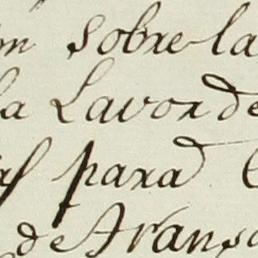 sobre la
la Lavor de
para
de Aransa